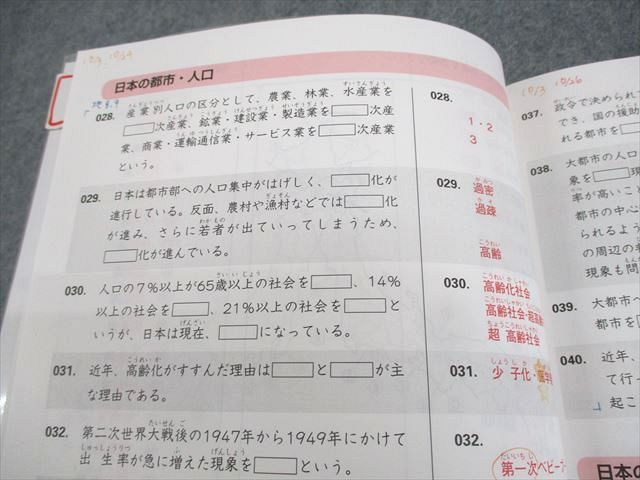 10/3 10/29
日本の都市・人口
028. 産業別人口の区分として、農業、林業、水産業を
次産業、鉱業・建設業・製造業を 次産
業、商業・運輸通信業・サービス業を 次産業
という。
029. 日本は都市部への人口集中がはげしく、 化が
進行している。反面、農村や漁村などでは 化
が進み、さらに若者が出ていってしまうため、
化が進んでいる。
030. 人口の7%以上が65歳以上の社会を 、14%
以上の社会を 、21%以上の社会を と
いうが、日本は現在、 になっている。
031. 近年、高齢化がすすんだ理由は と が主
な理由である。
032. 第二次世界大戦後の1947年から1949年にかけて
出生率が急に増えた現象を という。
028.
1・2
3
029. 過密
過疎
高齢
030. 高齢化社会
高齢社会・超高
超高齢社会
031. 少子化・医学
032.
第一次ベビーブー
10/3 10/26
037. 政令で決められ
でき、国の援助
れる都市を
038. 大都市の人口
象を 現
率が高いこ
都市の中心
られるよう
の周辺の
現象も問
039. 大都市
都市を
040. 近年、
て行っ
起こ
日本の